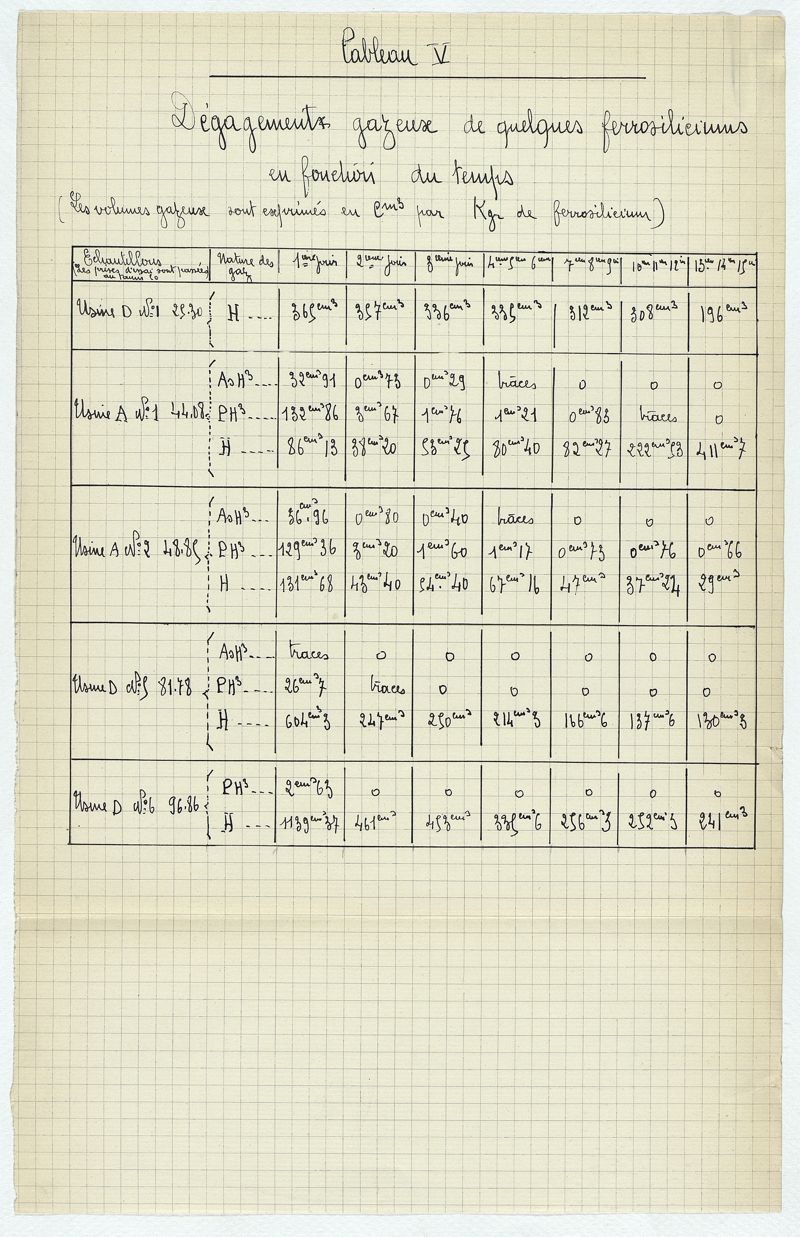 Tableau V
Dégagements gazeux de quelques ferrosiliciums
en fonction du temps
(Les volumes gazeux sont exprimés en cm³ par Kgr de ferrosilicium)
Echantillons (Les prises d'essai sont passées au tamis 60 Nature des gaz 1ère jour 2ème jour 3ème jour 4me 5me 6me 7me 8me 9me 10me 11me 12me 13me 14me 15me
Usine D No1 25.30 H .... 365cm³ 357cm³ 336cm³ 335cm³ 312cm³ 308cm³ 196cm³
AsH³.... 32cm³91 0cm³73 0cm³29 traces 0 0 0
Usine A No1 44.08 PH³.... 132cm³86 3cm³67 1cm³76 1cm³21 0cm³83 traces 0
H .... 86cm³13 38cm³20 53cm³25 80cm³40 82cm³27 222cm³53 411cm³7
AsH³.... 36cm³96 0cm³80 0cm³40 traces 0 0 0
Usine A No2 48.85 PH³.... 129cm³36 3cm³20 1cm³60 1cm³17 0cm³73 0cm³76 0cm³66
H .... 131cm³68 43cm³40 54cm³40 67cm³16 47cm³ 37cm³24 29cm³
AsH³.... traces 0 0 0 0 0 0
Usine D No5 81.78 PH³.... 26cm³7 traces 0 0 0 0 0
H .... 604cm³3 247cm³ 250cm³ 214cm³3 166cm³6 137cm³6 130cm³3
PH³.... 2cm³63 0 0 0 0 0 0
Usine D No6 96.86 H .... 1139cm³37 461cm³ 453cm³ 335cm³6 256cm³3 252cm³3 241cm³